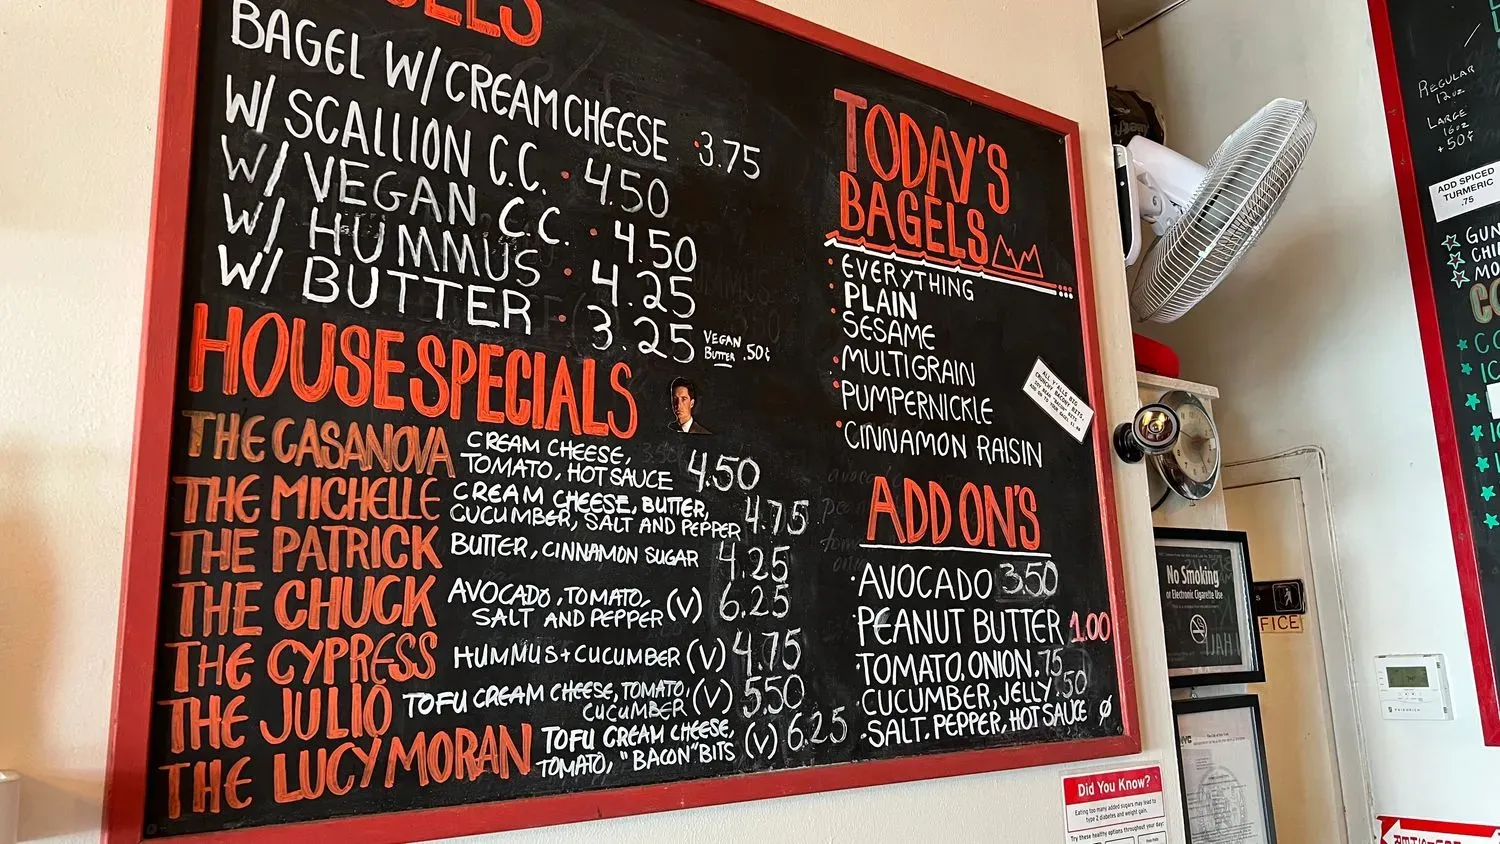 BAGEL W/ CREAM CHEESE · 3.75
W/ SCALLION C.C. · 4.50
W/ VEGAN C.C. · 4.50
W/ HUMMUS · 4.25
W/ BUTTER · 3.25 VEGAN
BUTTER .50¢
HOUSE SPECIALS
THE CASANOVA CREAM CHEESE,
TOMATO, HOT SAUCE 4.50
THE MICHELLE CREAM CHEESE, BUTTER,
CUCUMBER, SALT AND PEPPER 4.75
THE PATRICK BUTTER, CINNAMON SUGAR 4.25
THE CHUCK AVOCADO, TOMATO,
SALT AND PEPPER (V) 6.25
THE CYPRESS HUMMUS + CUCUMBER (V) 4.75
THE JULIO TOFU CREAM CHEESE, TOMATO,
CUCUMBER (V) 5.50
THE LUCY MORAN TOFU CREAM CHEESE,
TOMATO, "BACON" BITS (V) 6.25
TODAY'S
BAGELS
· EVERYTHING
· PLAIN
· SESAME
· MULTIGRAIN
· PUMPERNICKLE
· CINNAMON RAISIN
ADD ON'S
· AVOCADO 3.50
· PEANUT BUTTER 1.00
· TOMATO, ONION .75
· CUCUMBER, JELLY .50
· SALT, PEPPER, HOT SAUCE Ø
REGULAR
12oz
LARGE
16oz
+50¢
ADD SPICED
TURMERIC
.75
No Smoking
or Electronic Cigarette Use
FICE
Did You Know?
Eating too many added sugars may lead to
type 2 diabetes and weight gain.
Try these healthy options throughout your day: